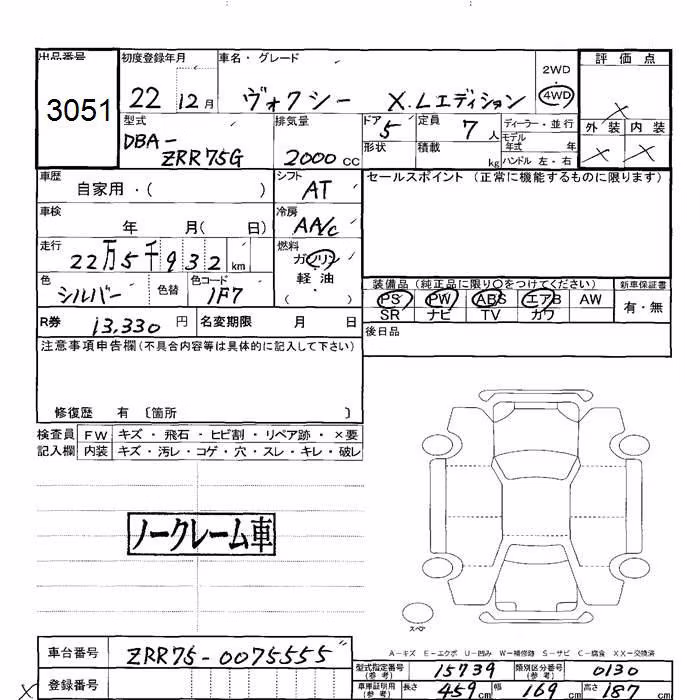 出品番号
3051
初度登録年月
22 12月
車名・グレード
ヴォクシー X.Lエディション
2WD
4WD
評価点
×
外装 内装
× ×
型式
DBA-
ZRR75G
排気量
2000 cc
ドア 5
形状
定員 7人
積載 kg
ディーラー・並行
モデル
年式 年
ハンドル 左・右
車歴
自家用・( )
シフト
AT
セールスポイント (正常に機能するものに限ります)
車検
年 月( 日)
冷房
AA/C
走行
22万5千932 km
燃料
ガソリン
・
軽油
( ・ )
色
シルバー
色替
色コード
1F7
装備品 (純正品に限り○をつけてください)
新車保証書
PS PW ABS エアB AW
SR ナビ TV カワ
有・無
R券 13,330 円
名変期限 月 日
後日品
注意事項申告欄(不具合内容等は具体的に記入して下さい)
修復歴 有 〔箇所 〕
検査員 FW キズ・飛石・ヒビ割・リペア跡・×要
記入欄 内装 キズ・汚レ・コゲ・穴・スレ・キレ・破レ
ノークレーム車
スペア
A-キズ E-エクボ U-凹み W-補修跡 S-サビ C-腐食 XX-交換済
車台番号 ZRR75-0075555
登録番号
×
型式指定番号
(参考)
15739
類別区分番号
(参考)
0130
車庫証明用
(参考)
長さ 459 cm 幅 169 cm 高さ 187 cm